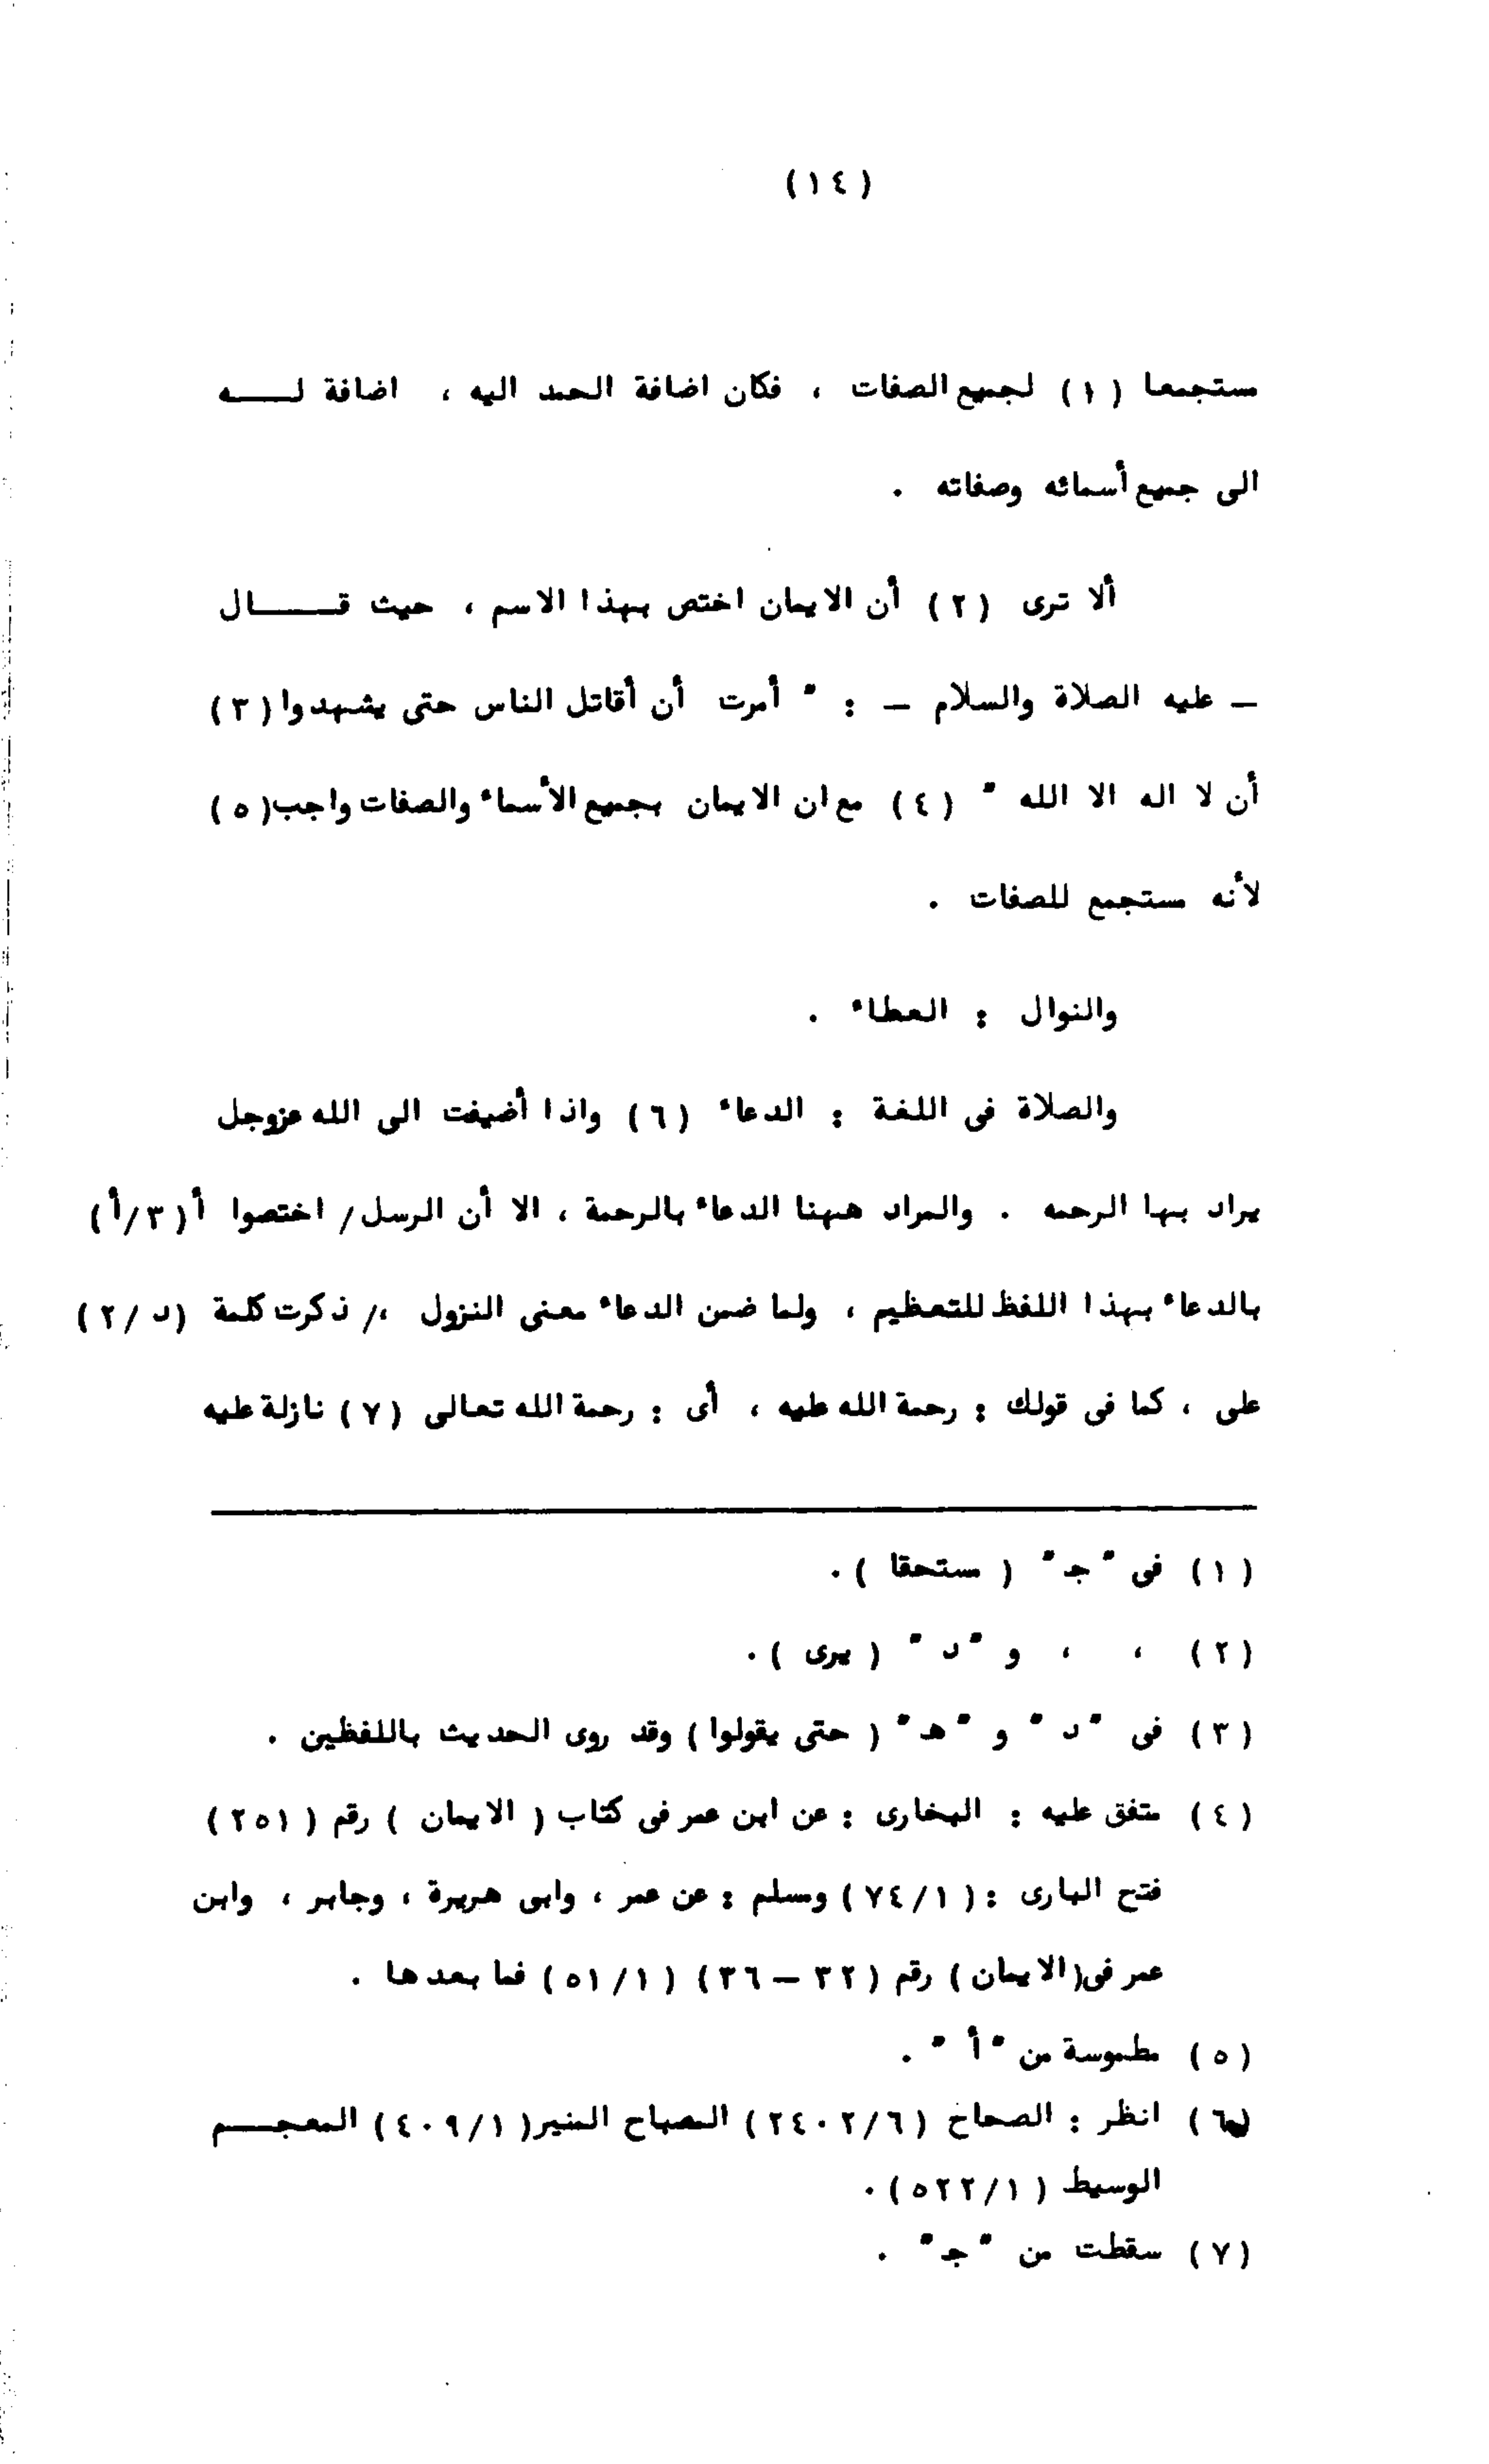 (١٤)
مستجمعا (١) لجميع الصفات ، فكان اضافة الحمد اليه ، اضافة لـــه
الى جميع أسمائه وصفاته .
ألا ترى (٢) أن الايمان اختص بهذا الاسم ، حيث قـــال
ـ عليه الصلاة والسلام ـ : " أمرت أن أقاتل الناس حتى يشهدوا (٣)
أن لا اله الا الله " (٤) مع ان الايمان بجميع الأسماء والصفات واجب (٥)
لأنه مستجمع للصفات .
والنوال : العطاء .
والصلاة فى اللغة : الدعاء (٦) واذا أضيفت الى الله عزوجل
يراد بها الرحمه . والمراد ههنا الدعاء بالرحمة ، الا أن الرسل / اختصوا أ(٣/أ)
بالدعاء بهذا اللفظ للتعظيم ، ولما ضمن الدعاء معنى النزول ،/ ذكرت كلمة (د/٢)
على ، كما فى قولك : رحمة الله عليه ، أى : رحمة الله تعالى (٧) نازلة عليه
(١) فى " جـ " ( مستحقا ) .
(٢) ، ، و " د " ( يرى ) .
(٣) فى " د " و " هـ " ( حتى يقولوا ) وقد روى الحديث باللفظين .
(٤) متفق عليه : البخارى : عن ابن عمر فى كتاب ( الايمان ) رقم ( ٢٥١ )
فتح البارى : ( ٧٤/١ ) ومسلم : عن عمر ، وابى هريرة ، وجابر ، وابن
عمر فى ( الايمان ) رقم ( ٣٢ ـ ٣٦ ) ( ٥١/١ ) فما بعدها .
(٥) مطموسة من " أ " .
(٦) انظر : الصحاح ( ٢٤٠٢/٦ ) المصباح المنير ( ٤٠٩/١ ) المعجـــم
الوسيط ( ٥٢٢/١ ) .
(٧) سقطت من " جـ " .